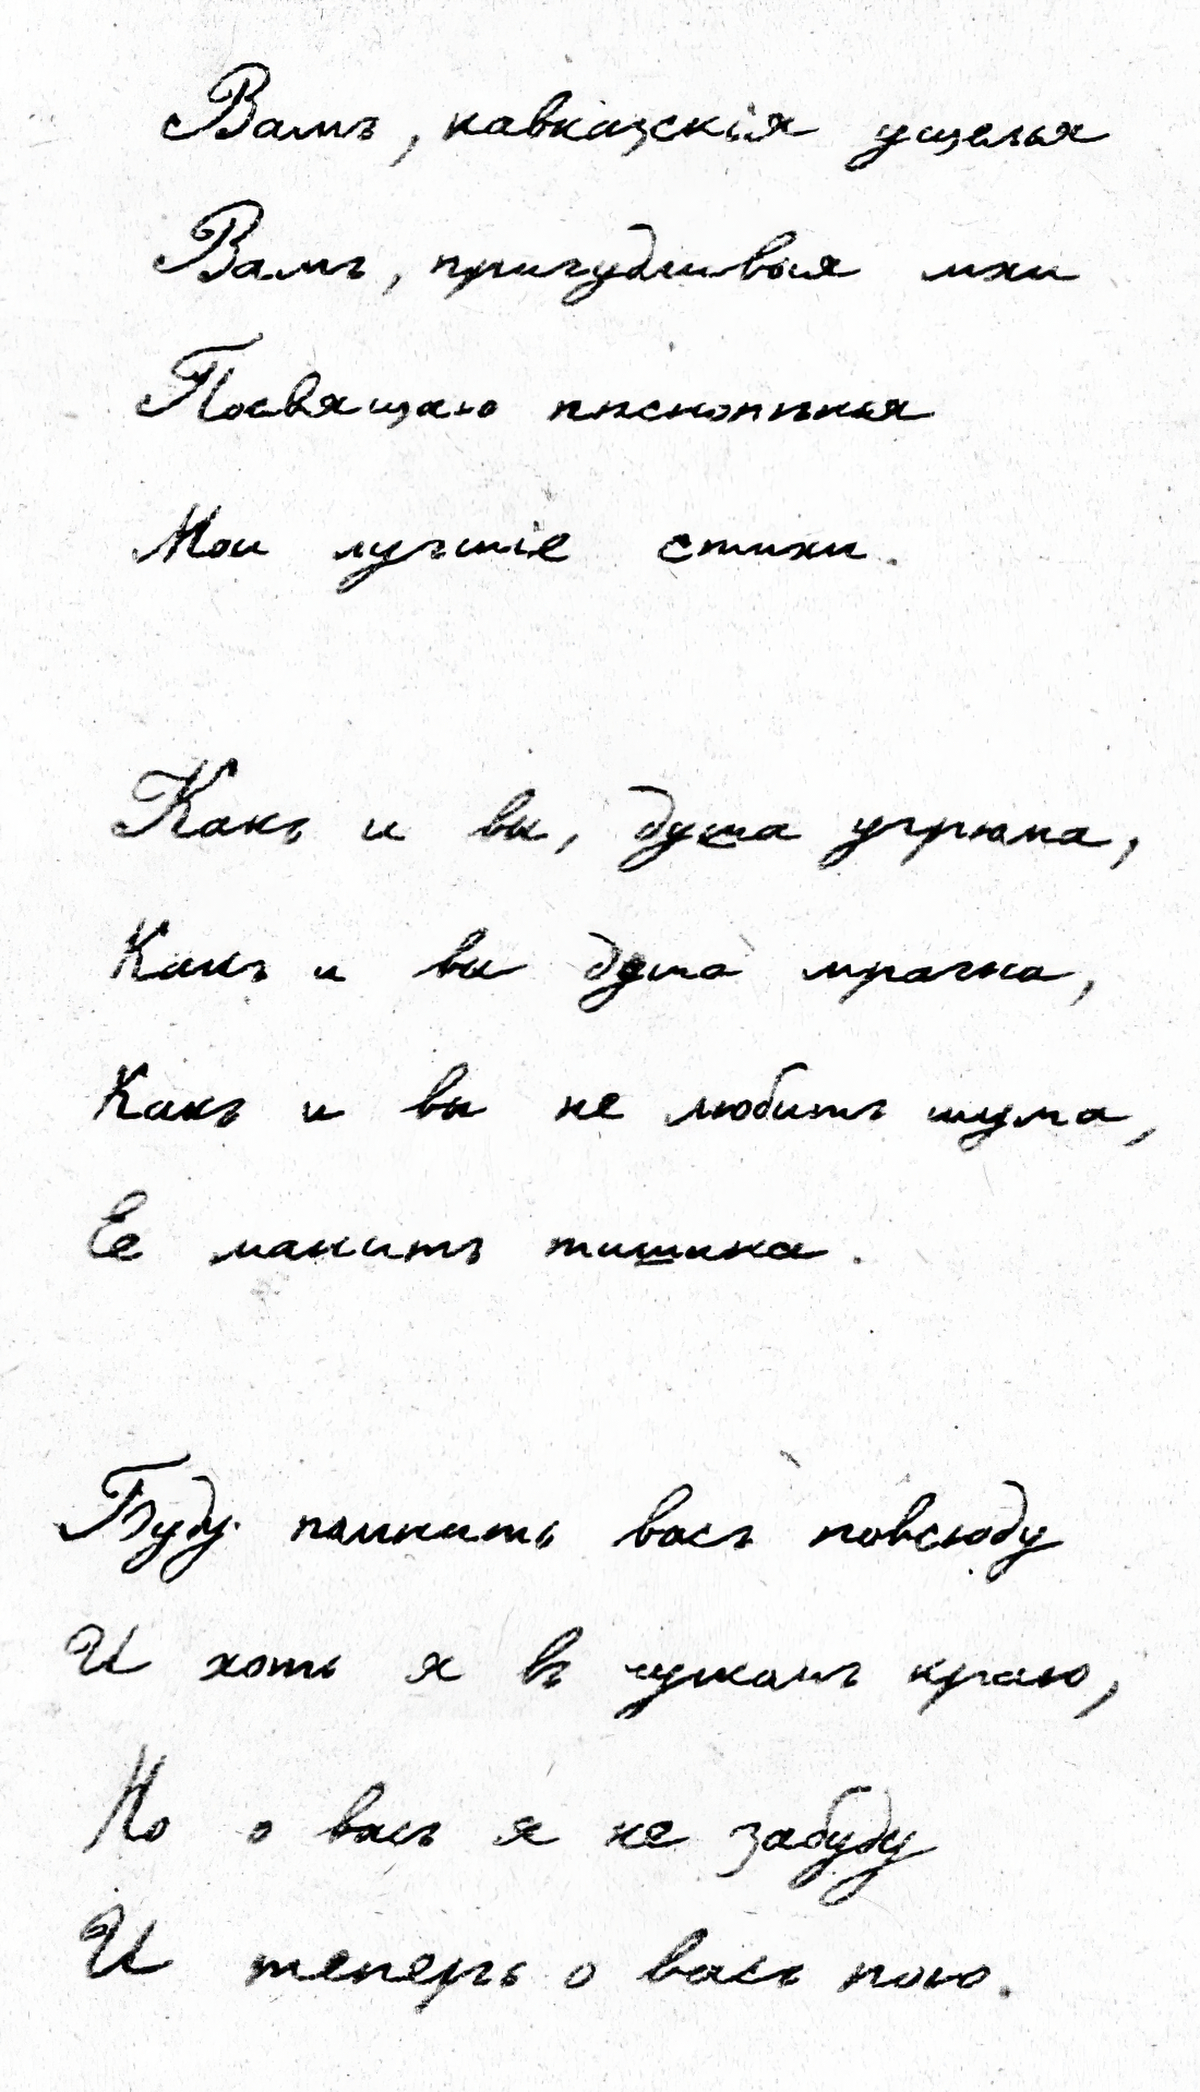 Вамъ, кавказскія ущелья
Вамъ, причудливыя мхи
Посвящаю пѣснопѣнья
Мои лучшіе стихи.
Какъ и вы, душа угрюма,
Какъ и вы душа мрачна,
Какъ и вы не любитъ шума,
Ее манитъ тишина.
Буду помнить васъ повсюду
И хоть я въ чужомъ краю,
Но о васъ я не забуду
И теперь о васъ пою.